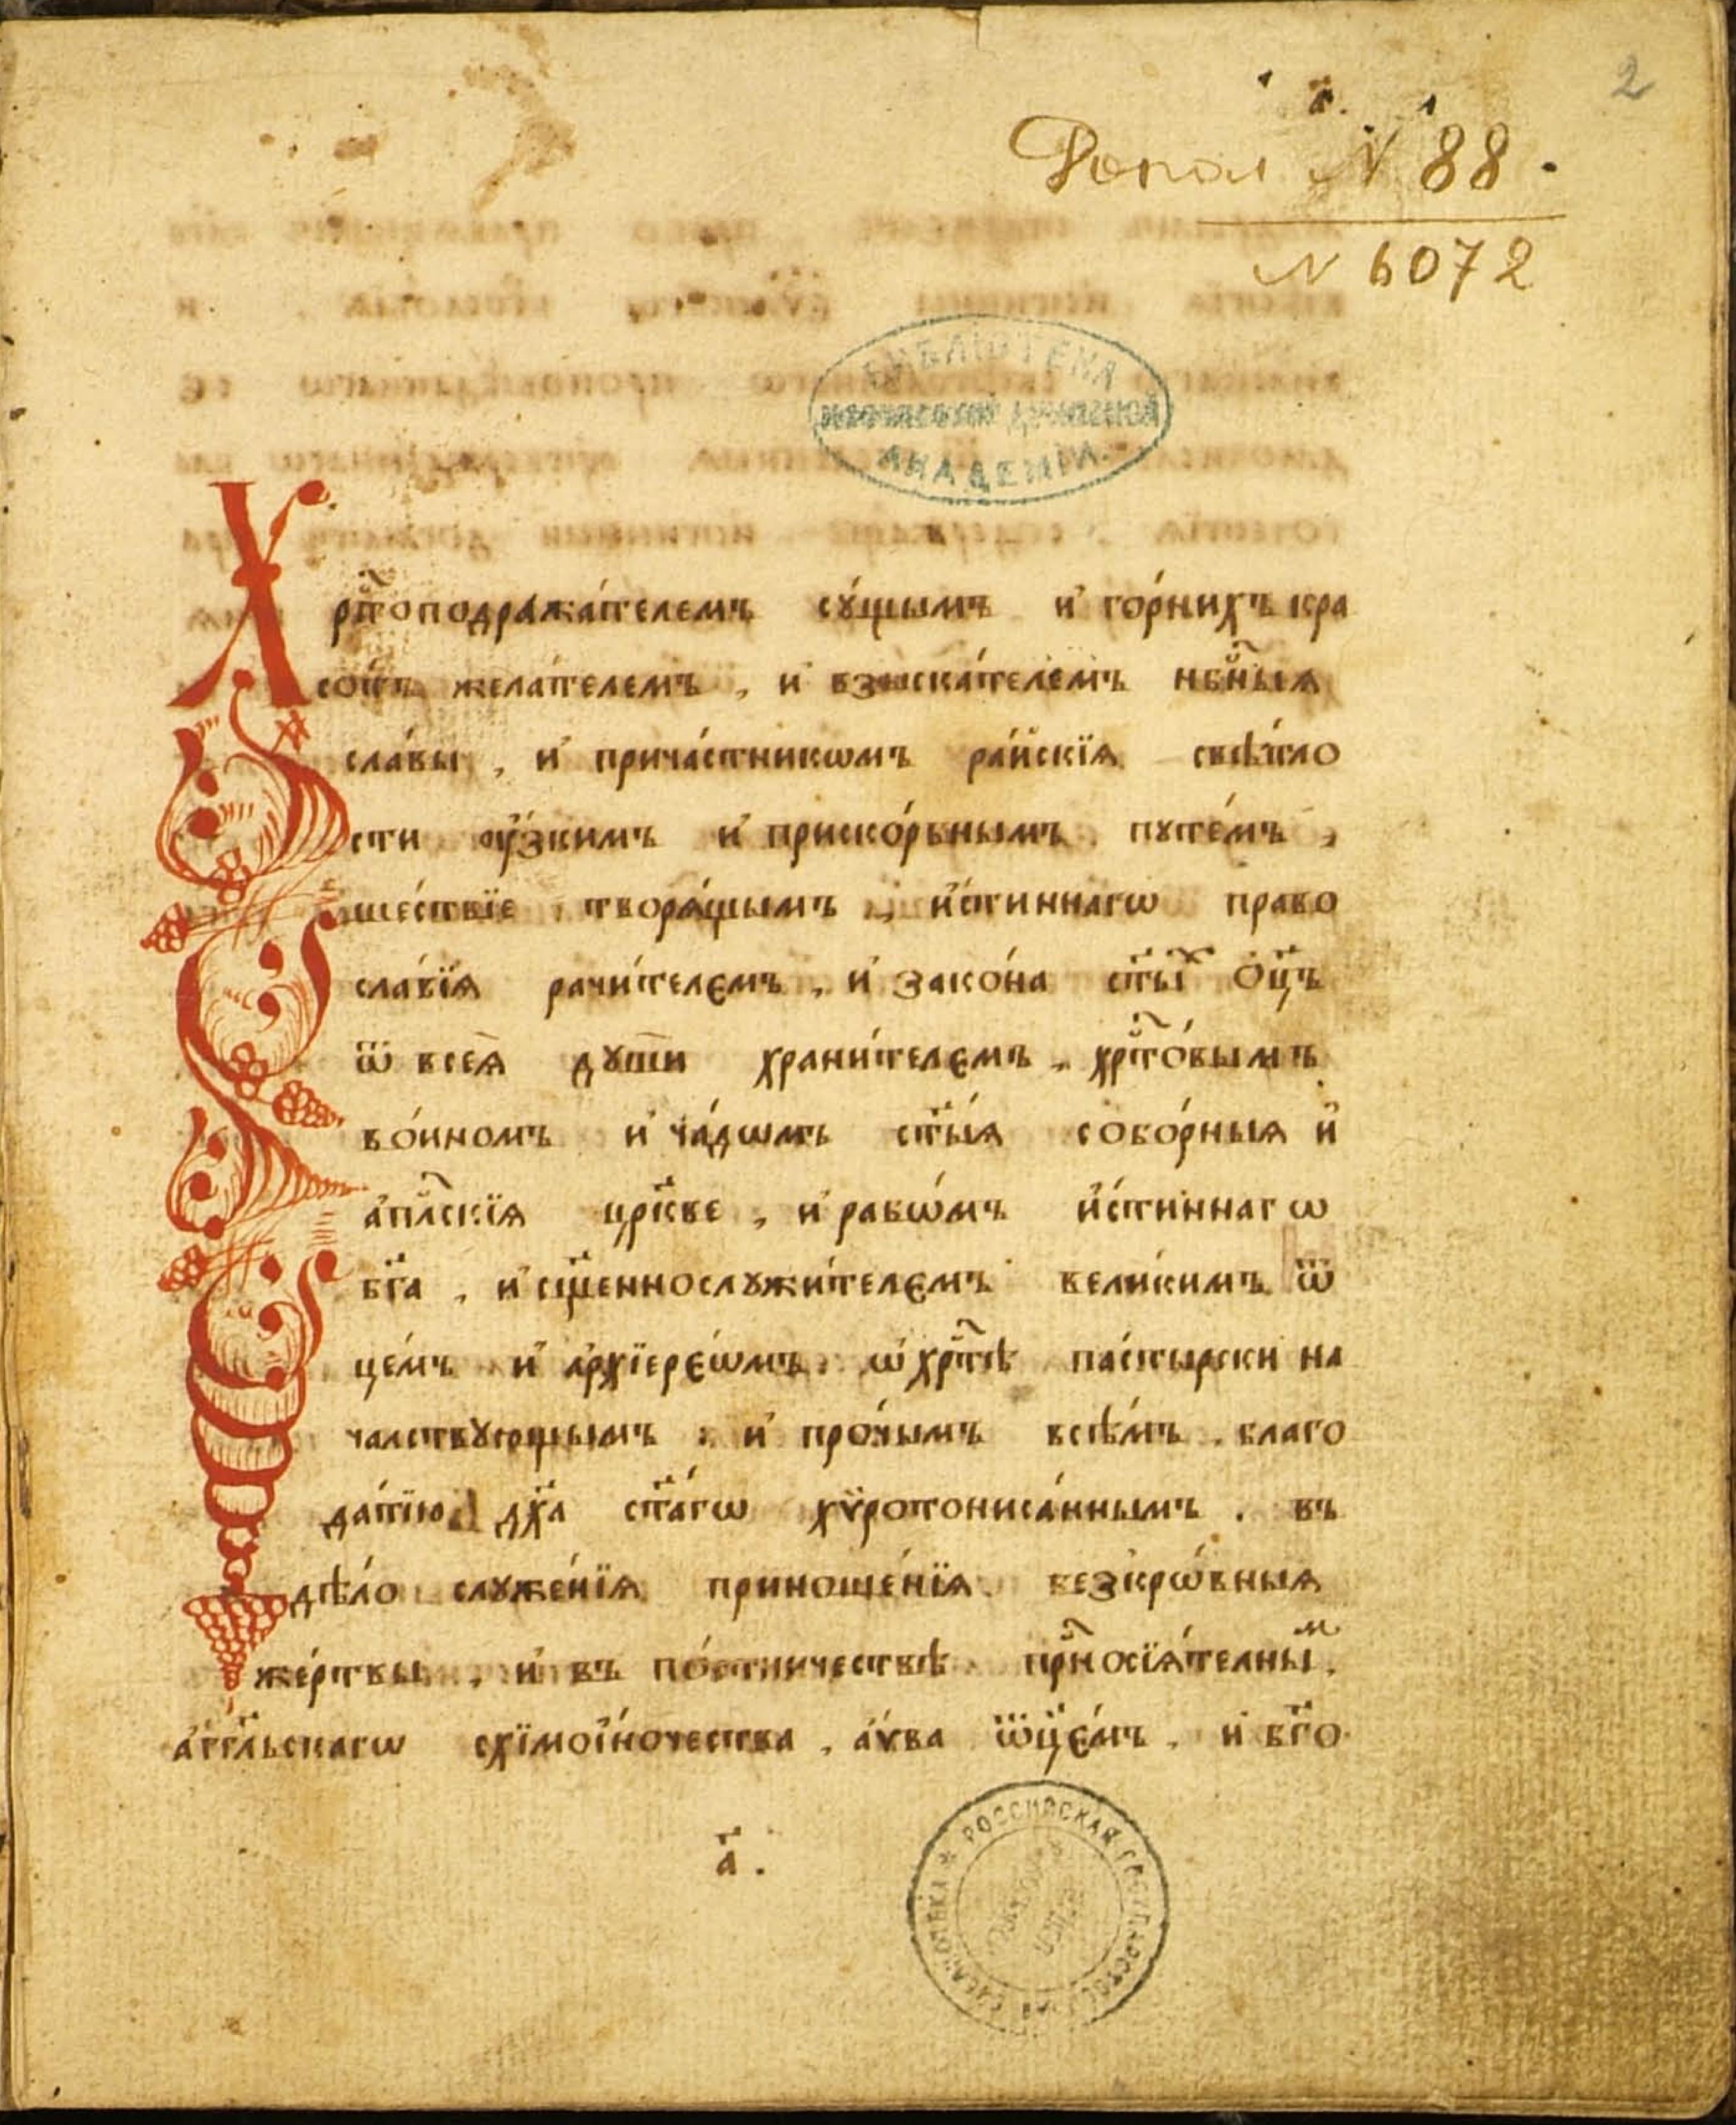 2
Допол N 88.
N 6072
БИБЛІОТЕКА
ДУХОВНОЙ
АКАДЕМІИ.
Хрⷭ҇топодража́телемъ сꙋ́щымъ и҆ го́рнихъ кра
со́тъ жела́телемъ, и҆ взыска́телемъ нбⷭ҇ныѧ
сла́вы, и҆ прича́стникѡмъ ра́йскїѧ свѣ́тло
сти оу҆́зкимъ и҆приско́рбнымъ путе́мъ,
ше́ствїе творѧ́щымъ, и҆́стиннагѡ право
сла́вїѧ рачи́телємъ, и҆ зако́на ст҃ы́ⷯ ѻ҆ц҃ъ
ѿ всеѧ̀ дꙋшѝ храни́телємъ, хрⷭ҇то́вымъ
во́иномъ и҆ ча́дѡмъ ст҃ы́ѧ собо́рныѧ и҆
а҆пⷭ҇лскїѧ цр҃кве, и҆ рабѡ́мъ и҆́стиннагѡ
бг҃а, и҆ сщ҃еннослꙋжи́телємъ вели́кимъ ѿ
це́мъ и҆ а҆рхїерє́ѡмъ. ѡ҆ хрⷭ҇тѣ̀ па́стырски на
чалствꙋющымъ: и҆ про́чымъ всѣ́мъ. благо
да́тїю дх҃а ст҃а́гѡ хѵротониса́ннымъ. въ
дѣ́ло слꙋже́нїѧ приноше́нїѧ безкрѡ́вныѧ
же́ртвы, и҆ въ по́стничествѣ прⷭ҇носїѧ́телныⷨ,
а҆́гг҃льскагѡ схїмоі҆́ночества, а҆́ѵва ѿц҃є́мъ, и҆ бг҃о
а҃.
РОССИЙСКАЯ ГОСУДАРСТВЕННАЯ БИБЛИОТЕКА